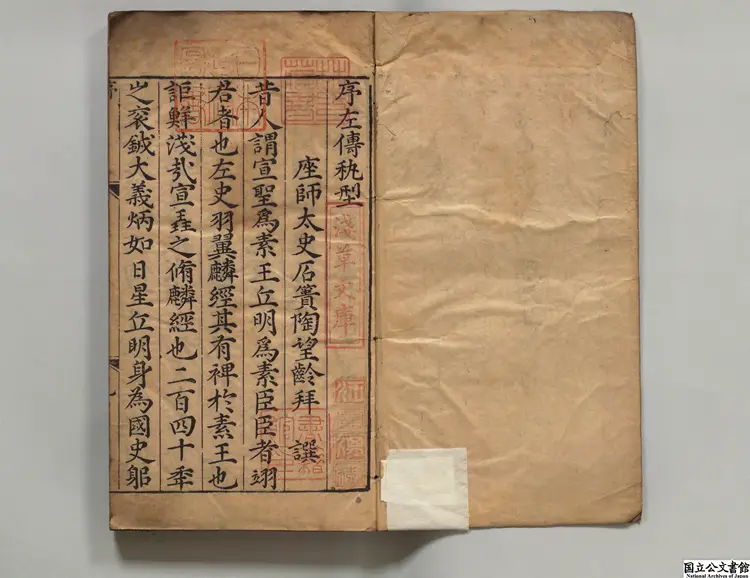 序左傳秇型
座師太史石簣陶望齡拜 譔
昔人謂宣聖爲素王丘明爲素臣臣者翊
君者也左史羽翼麟經其有裨於素王也
詎鮮淺㢤宣聖之脩麟經也二百四十季
之衮鉞大義炳如日星丘明身為國史躳
淺草文庫
国立公文書館
National Archives of Japan